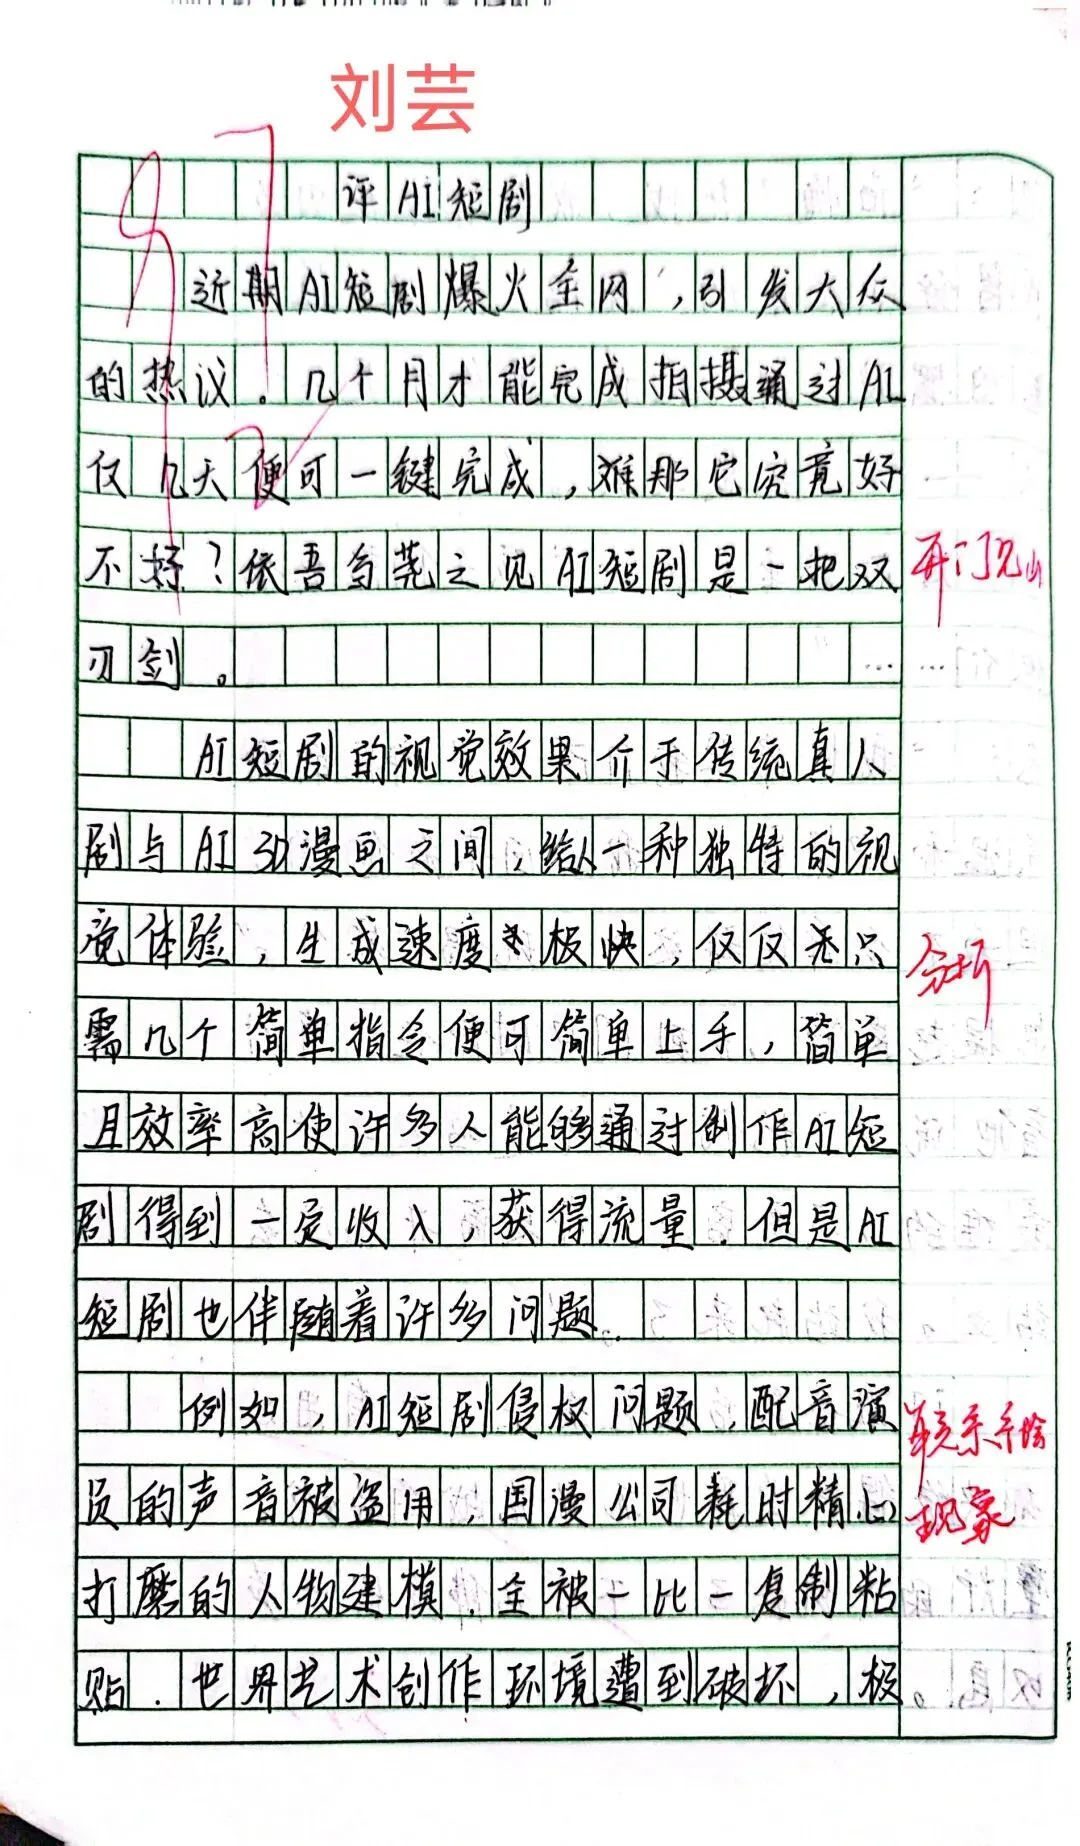 刘芸
评AI短剧
近期AI短剧爆火全网,引发大众
的热议。几个月才能完成拍摄通过AI
仅几天便可一键完成,难那它究竟好
不好?依吾刍荛之见AI短剧是一把双
开门见山
刃剑。
AI短剧的视觉效果介于传统真人
剧与AI3D漫画之间,给人一种独特的视
觉体验,生成速度极快,仅仅只
分析
需几个简单指令便可简单上手,简单
且效率高使许多人能够通过创作AI短
剧得到一定收入,获得流量.但是AI
短剧也伴随着许多问题.
例如,AI短剧侵权问题,配音演
联系
现象
员的声音被盗用,国漫公司耗时精心
打磨的人物建模.全被一比一复制粘
贴.世界艺术创作环境遭到破坏,极